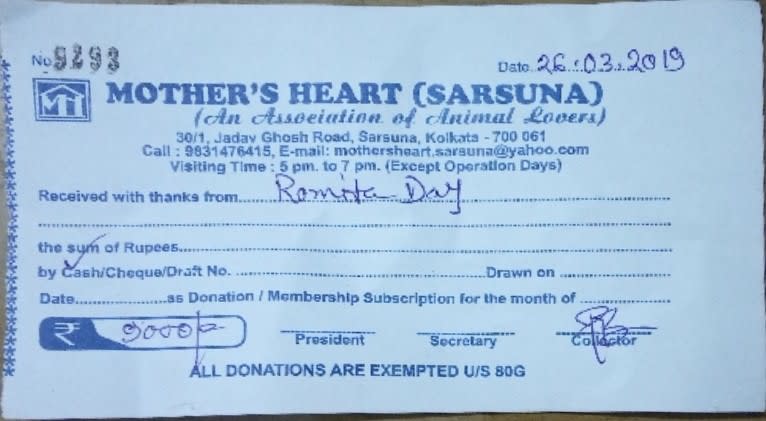 No. 9293 Date 26.03.2019
MOTHER'S HEART (SARSUNA)
(An Association of Animal Lovers)
30/1, Jadav Ghosh Road, Sarsuna, Kolkata - 700 061
Call : 9831476415, E-mail: mothersheart.sarsuna@yahoo.com
Visiting Time : 5 pm. to 7 pm. (Except Operation Days)
Received with thanks from Romita Day
the sum of Rupees
by Cash/Cheque/Draft No. Drawn on
Date as Donation / Membership Subscription for the month of
₹
President Secretary Collector
ALL DONATIONS ARE EXEMPTED U/S 80G